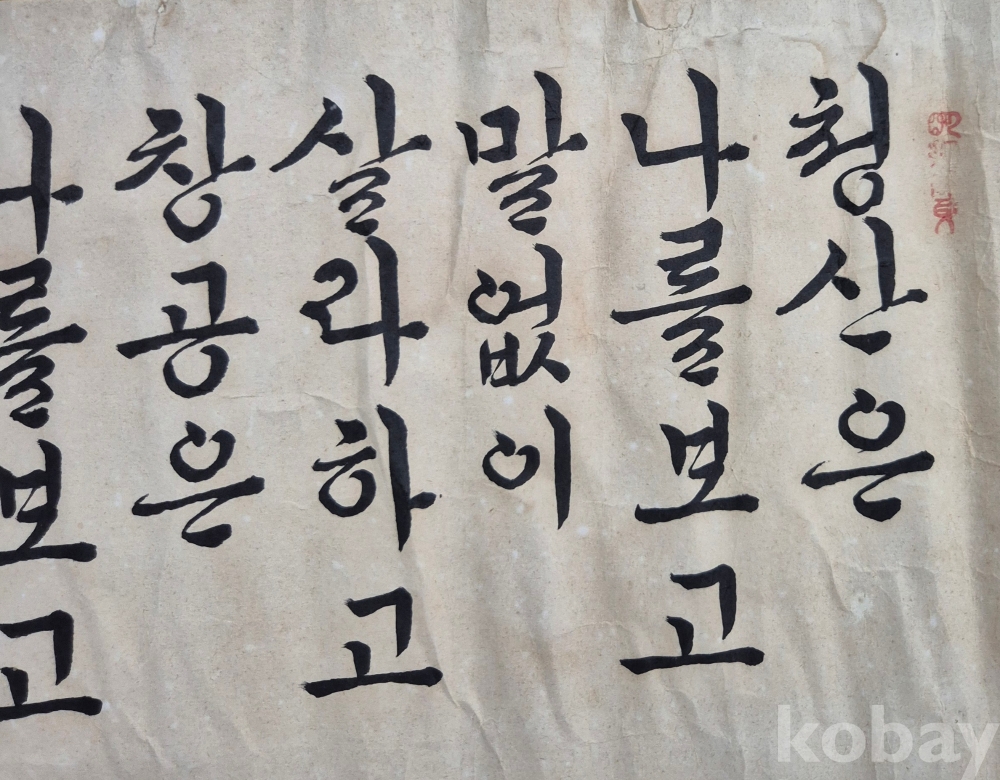 청산은
나를보고
말없이
살라하고
창공은
나를보고
kobay